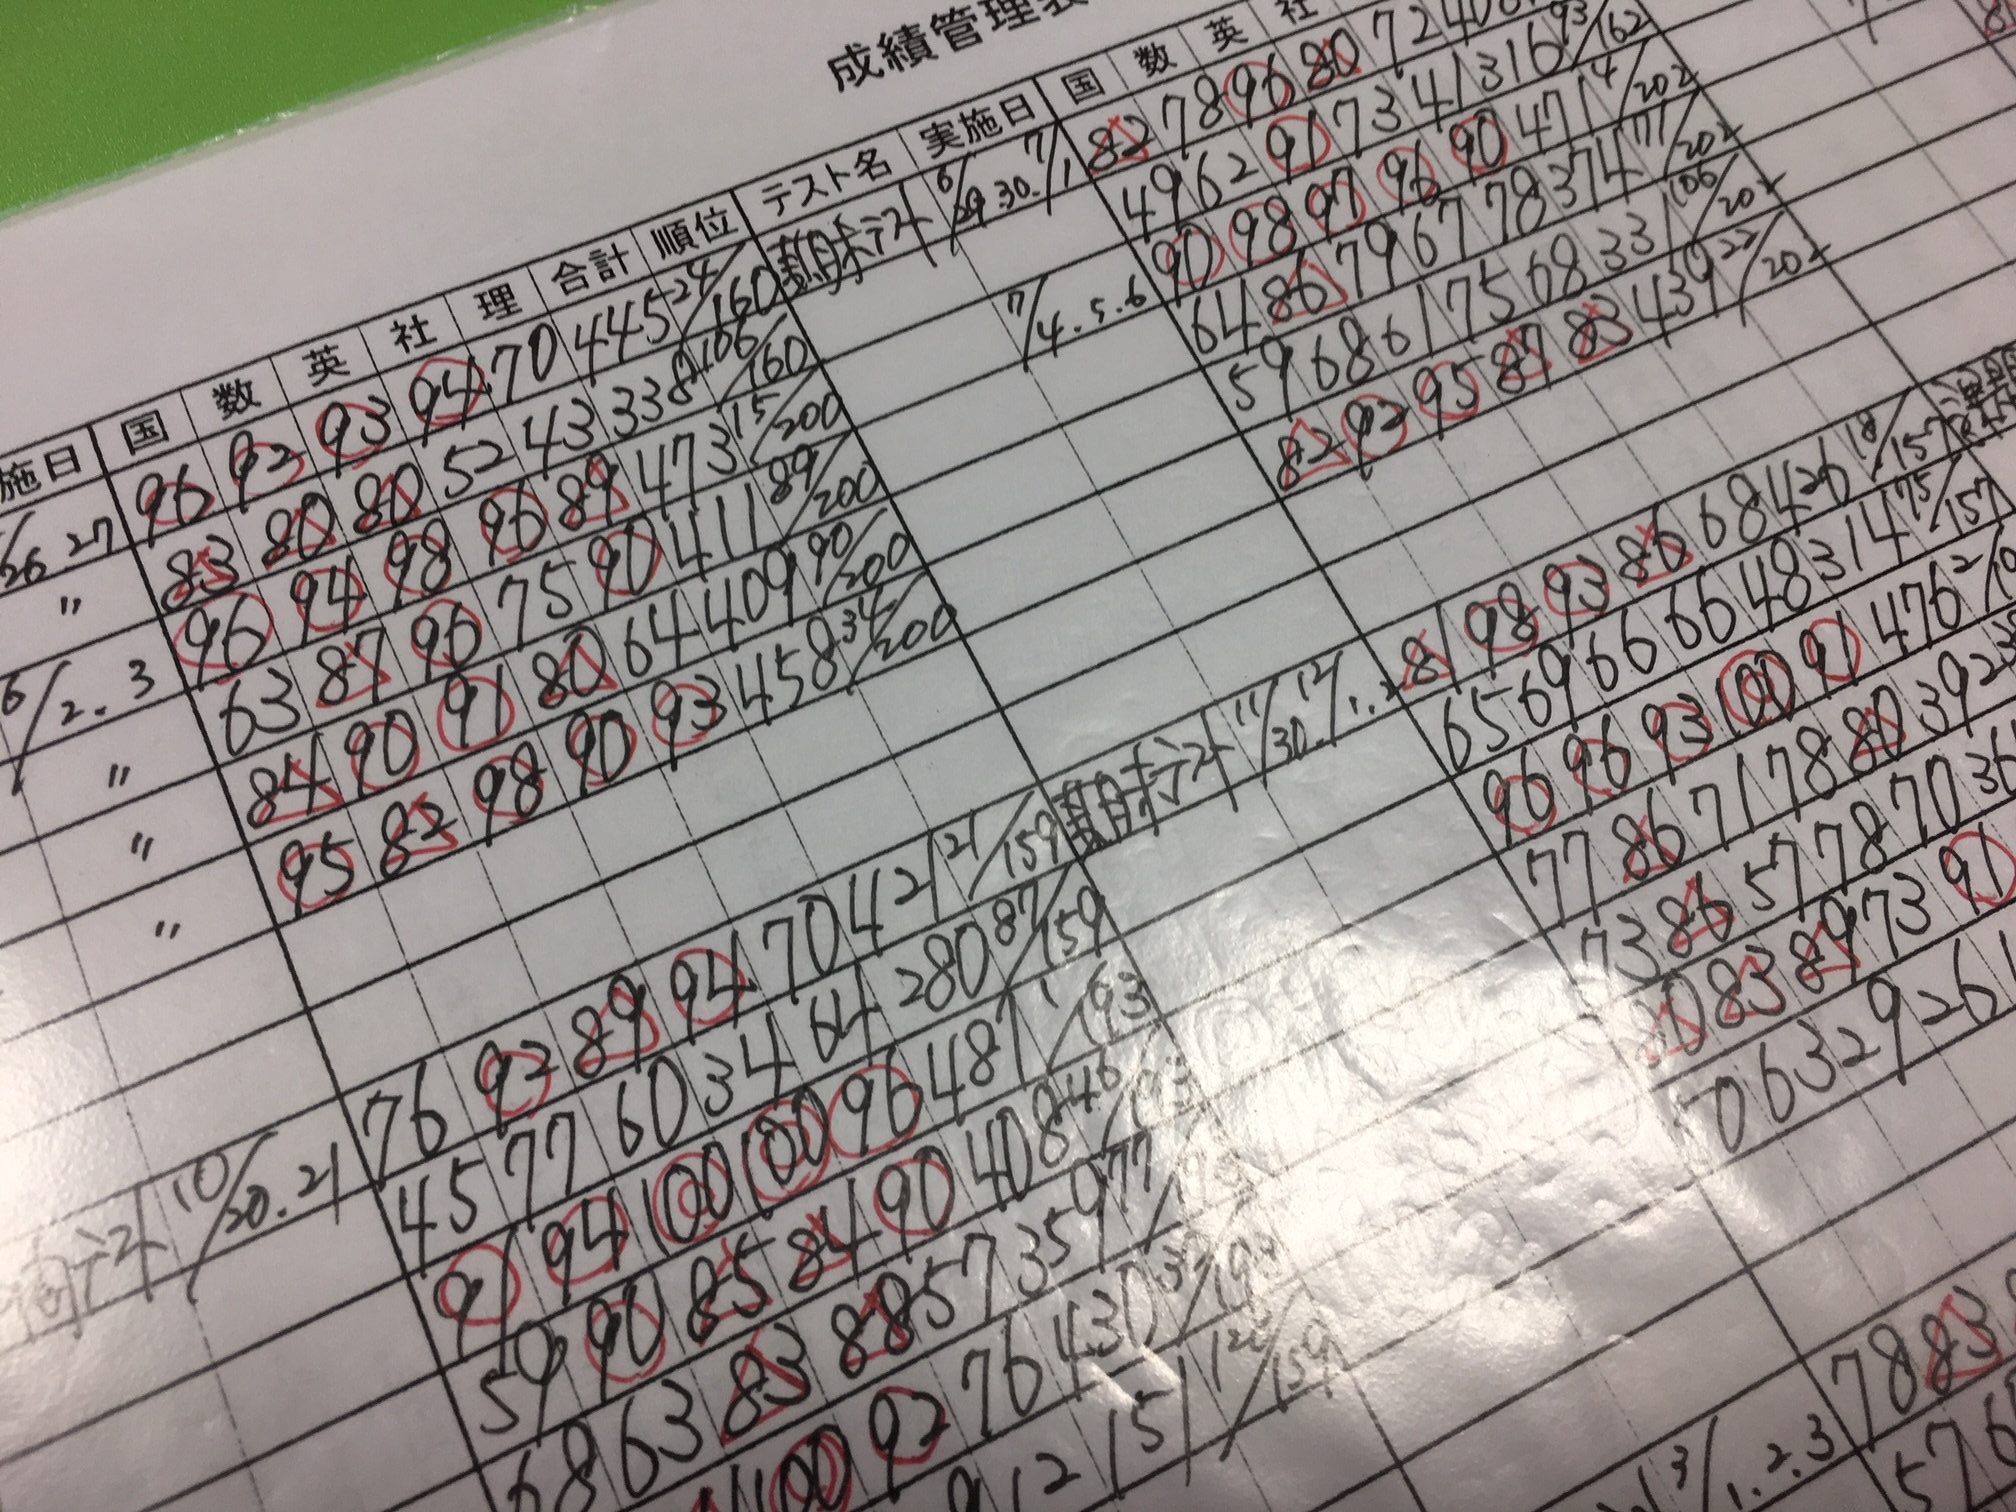 成績管理表
施日 国 数 英 社 理 合計 順位 テスト名 実施日 国 数 英 社
26.27 96 92 93 94 70 445 24/160 期末テスト 6/29.30.7/1 82 78 96 80 72
〃 83 80 80 52 43 338 106/160 49 62 91 73 41 316 93/162
6/2.3 96 94 98 96 89 473 15/200 7/4.5.6 90 98 97 96 90 471 4/202
〃 63 87 96 75 90 411 89/200 64 86 79 67 78 374 71/202
〃 84 90 91 80 64 409 90/200 59 68 61 75 68 331 106/202
〃 95 82 98 90 93 458 34/200 82 92 95 87 83 439 22/202
間テスト 10/20.21 76 92 89 94 70 421 21/159 期末テスト 11/30.12/1.2 81 98 93 86 68 426 18/157
45 77 60 34 64 280 87/159 65 69 66 66 48 314 75/157
91 94 100 100 96 481 1/193 96 96 93 100 91 476 2
59 90 85 84 90 408 46/193 77 86 71 78 80 392
68 63 83 88 57 359 77 73 86 57 78 70
100 92 76 430 80 83 89 73 91
12 151 12 /159 0 63 29 26
78 83
3/1.2.3 57